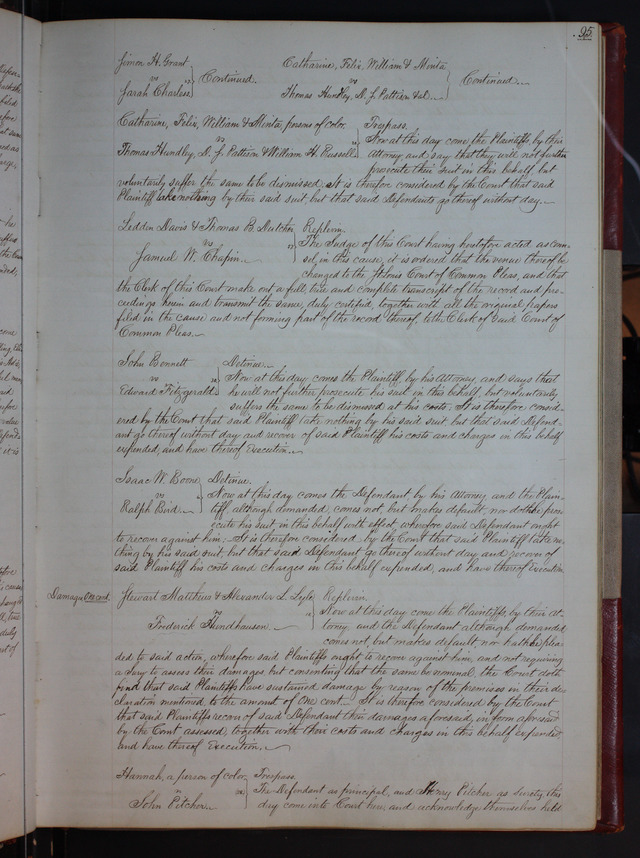 95
Simon H. Grant
vs } Continued.
Sarah Charless
Catharine, Felix, William & Minta
vs } Continued.
Thomas Hundley, N. J. Pattison & al.
Catharine, Felix, William & Minta, persons of color, Trespass.
vs } Now at this day come the Plaintiffs, by their
Thomas Hundley, N. J. Pattison & William H. Russell Attorney and say that they will not further
prosecute their suit in this behalf, but
voluntarily suffer the same to be dismissed. It is therefore considered by the Court that said
Plaintiff take nothing by their said suit but that said Defendants go thereof without day.
Leddin Davis & Thomas B. Replevin.
vs } The Judge of this Court having heretofore acted as coun-
Samuel W. Chapin. sel, in this cause, it is ordered that the venue thereof be
changed to the St. Louis Court of Common Pleas, and that
the Clerk of this Court make out a full, true and complete transcript of the record and pro-
ceedings herein and transmit the same, duly certified, together with all the original papers
filed in the cause and not forming part of the record thereof, to the Clerk of said Court of
Common Pleas.
John Bennett Detinue.
vs } Now at this day comes the Plaintiff, by his Attorney, and says that
Edward Fitzgerald he will not further prosecute his suit in this behalf, but voluntarily
suffers the same to be dismissed at his costs. It is therefore consid-
ered by the Court that said Plaintiff take nothing by his said suit, but that said Defend-
ant go thereof without day and recover of said Plaintiff his costs and charges in this behalf
expended, and have thereof Execution.
Isaac W. Boone Detinue.
vs } Now at this day comes the Defendant, by his Attorney, and the Plain-
Ralph Bird. tiff although demanded, comes not, but makes default, nor doth he pros-
ecute his suit in this behalf with effect, wherefore said Defendant ought
to recover against him. It is therefore considered by the Court that said Plaintiff take no-
thing by his said suit, but that said Defendant go thereof without day and recover of
said Plaintiff his costs and charges in this behalf expended, and have thereof Execution.
Damages One cent. Stewart Matthews & Alexander L. Lyle, Replevin.
vs } Now at this day come the Plaintiffs by their At-
Frederick Hundhausen. torney and the Defendant although demanded
comes not, but makes default, nor hath he plea-
ded to said action, wherefore said Plaintiffs ought to recover against him, and not requiring
a Jury to assess their damages, but consenting that the same be nominal, the Court doth
find that said Plaintiffs have sustained damage by reason of the premises in their de-
claration mentioned, to the amount of One cent. It is therefore considered by the Court
that said Plaintiffs recover of said Defendant their damages aforesaid, in form aforesaid
by the Court assessed, together with their costs and charges in this behalf expended
and have thereof Execution.
Hannah, a person of color, Trespass.
vs } The Defendant as principal, and Henry Pitcher as surety this
John Pitcher. day come into Court here, and acknowledge themselves held